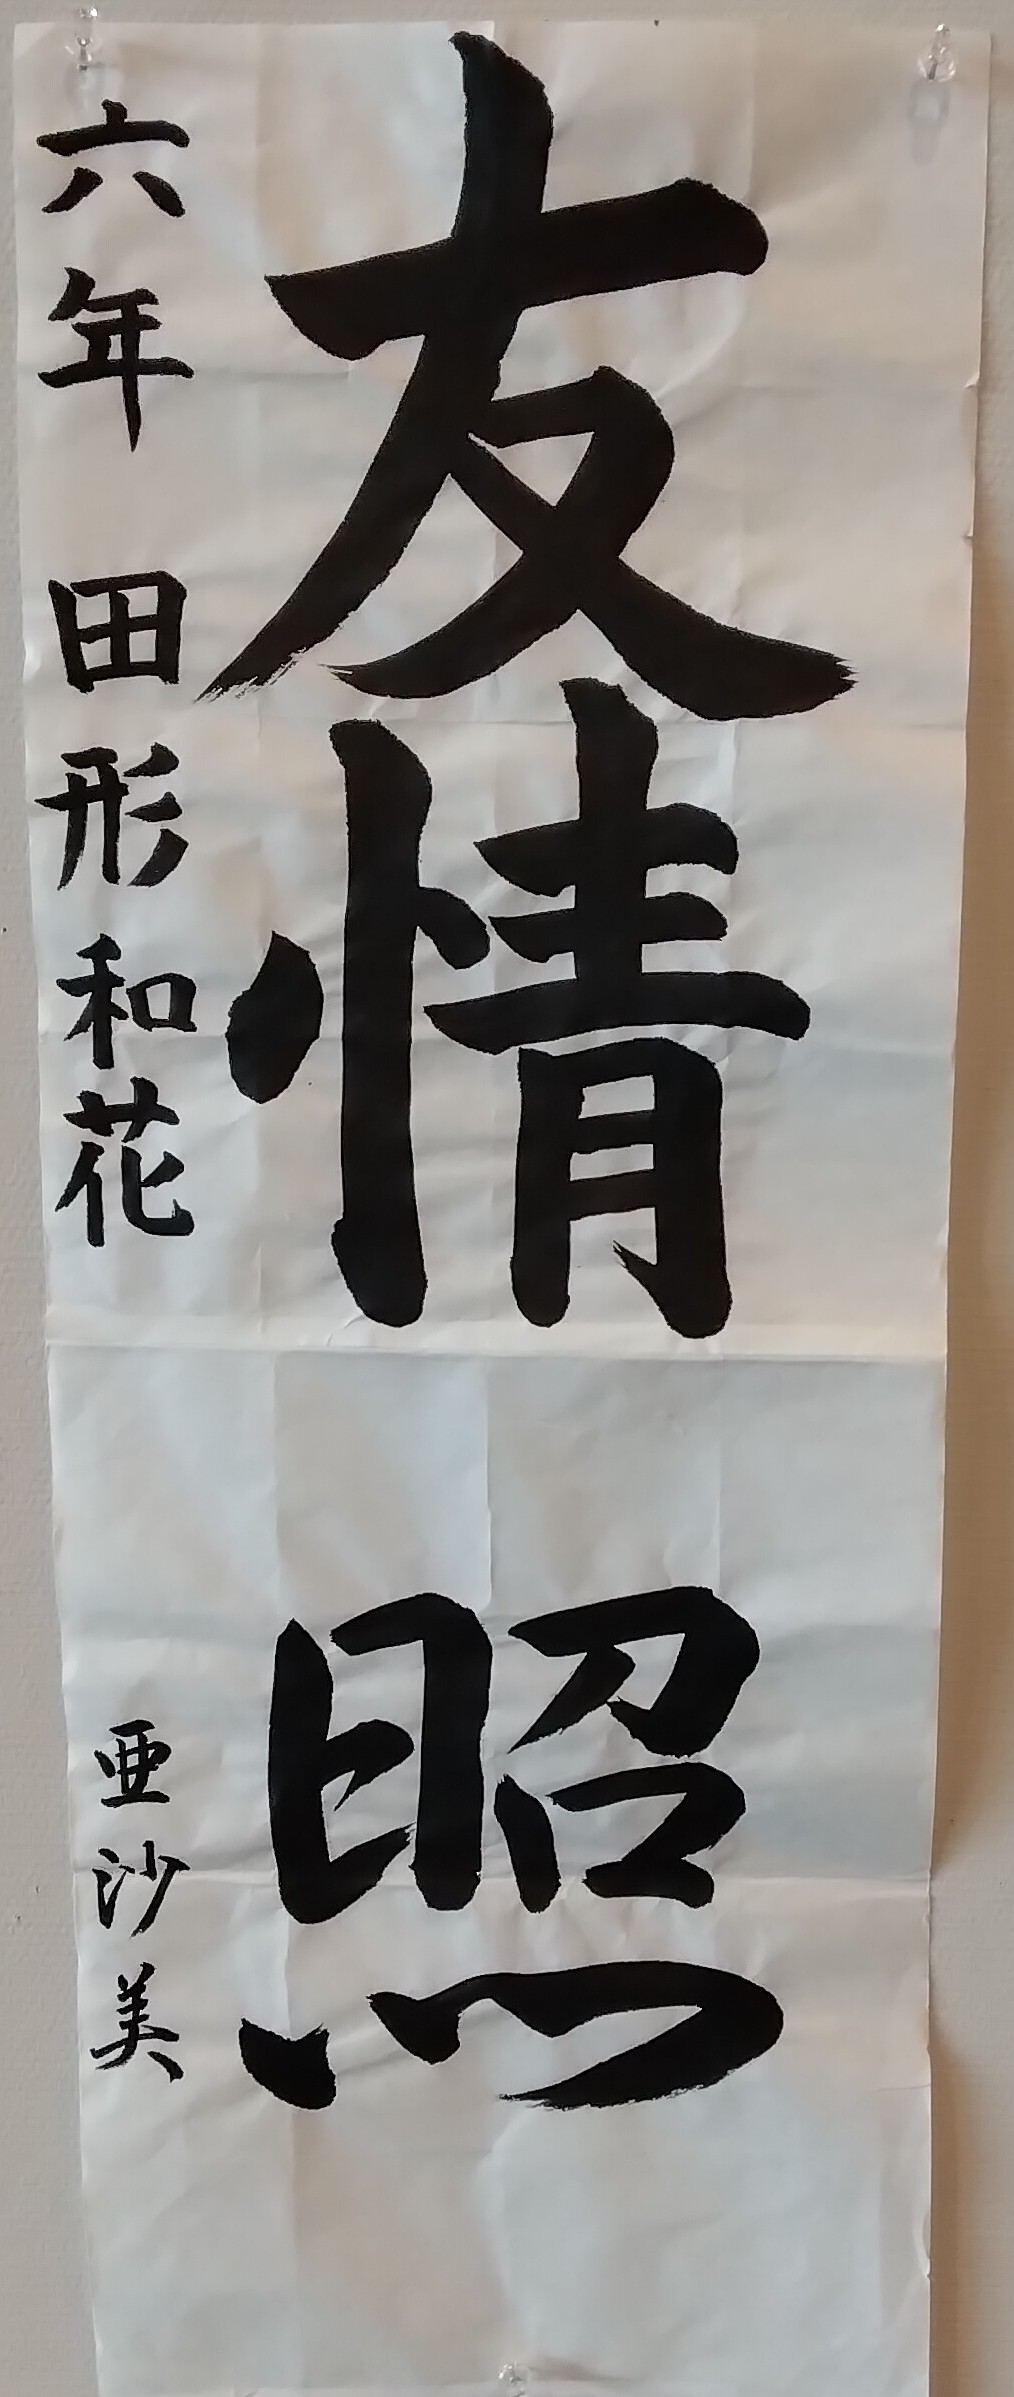 友情
六年 田形和花
照
亜沙美